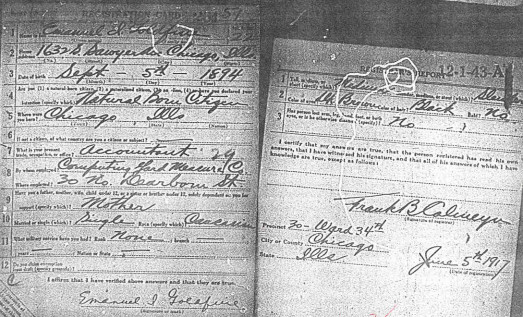 REGISTRATION CARD
1 Emanuel I. Golfine 22
2 1632 S. Sawyer Av Chicago, Ills
3 Date of birth Sept - 5th - 1894
4 Are you (1) a natural-born citizen, (2) a naturalized citizen, (3) an alien, (4) or have you declared your
intention (specify which)? Natural Born Citizen
5 Where were you born? Chicago Ills
6 If not a citizen, of what country are you a citizen or subject?
7 What is your present trade, occupation, or office? Accountant 29
8 By whom employed? Computing Yard Measure Co.
Where employed? 30 No. Dearborn St
9 Have you a father, mother, wife, child under 12, or a sister or brother under 12, solely dependent on you for
support (specify which)? Mother
10 Married or single (which)? Single Race (specify which)? Caucasian
11 What military service have you had? Rank None ; branch
years ; Nation or State
12 Do you claim exemption from draft (specify grounds)?
I affirm that I have verified above answers and that they are true.
Emanuel I Golafine
(Signature or mark)
12-1-43-A
1 Tall, medium, or short (specify which)? Medium Slender, medium, or stout (which)? Slender
2 Color of eyes? Dk Brown Color of hair? Black Bald? No
3 Has person lost arm, leg, hand, foot, or both eyes, or is he otherwise disabled (specify)? No
I certify that my answers are true, that the person registered has read his own
answers, that I have witnessed his signature, and that all of his answers of which I have
knowledge are true, except as follows:
Frank B Calmeyn
(Signature of registrar)
Precinct 30 - Ward 34th
City or County Chicago
State Ills
June 5th 1917
(Date of registration)